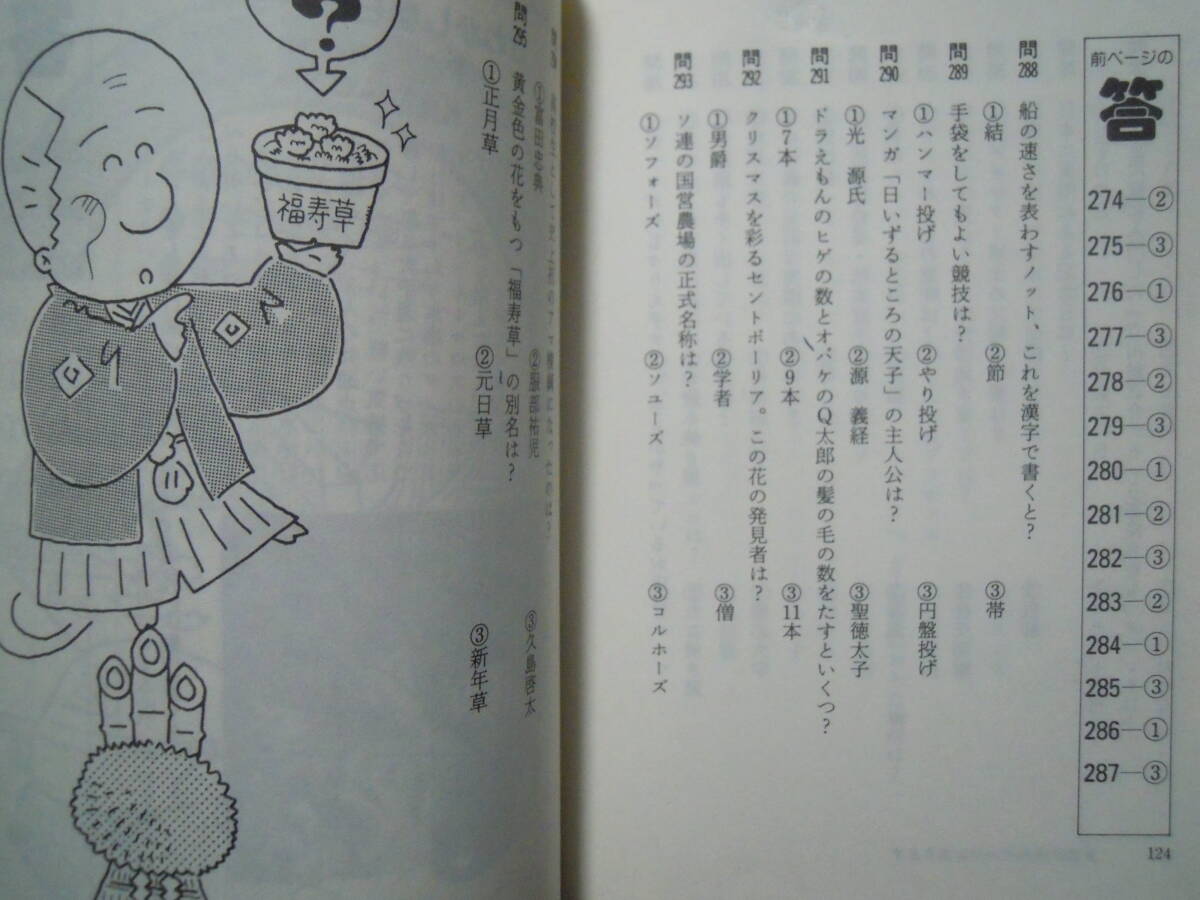 前ページの
答
274―②
275―③
276―①
277―③
278―②
279―③
280―①
281―②
282―③
283―②
284―①
285―③
286―①
287―③
問288 船の速さを表わすノット、これを漢字で書くと？
①結 ②節 ③帯
問289 手袋をしてもよい競技は？
①ハンマー投げ ②やり投げ ③円盤投げ
問290 マンガ「日いずるところの天子」の主人公は？
①光 源氏 ②源 義経 ③聖徳太子
問291 ドラえもんのヒゲの数とオバケのQ太郎の髪の毛の数をたすといくつ？
①7本 ②9本 ③11本
問292 クリスマスを彩るセントポーリア。この花の発見者は？
①男爵 ②学者 ③僧
問293 ソ連の国営農場の正式名称は？
①ソフォーズ ②ソユーズ ③コルホーズ
124
①富田忠典 ②服部祐児 ③久島啓太
問295 黄金色の花をもつ「福寿草」の別名は？
①正月草 ②元日草 ③新年草
？
福寿草